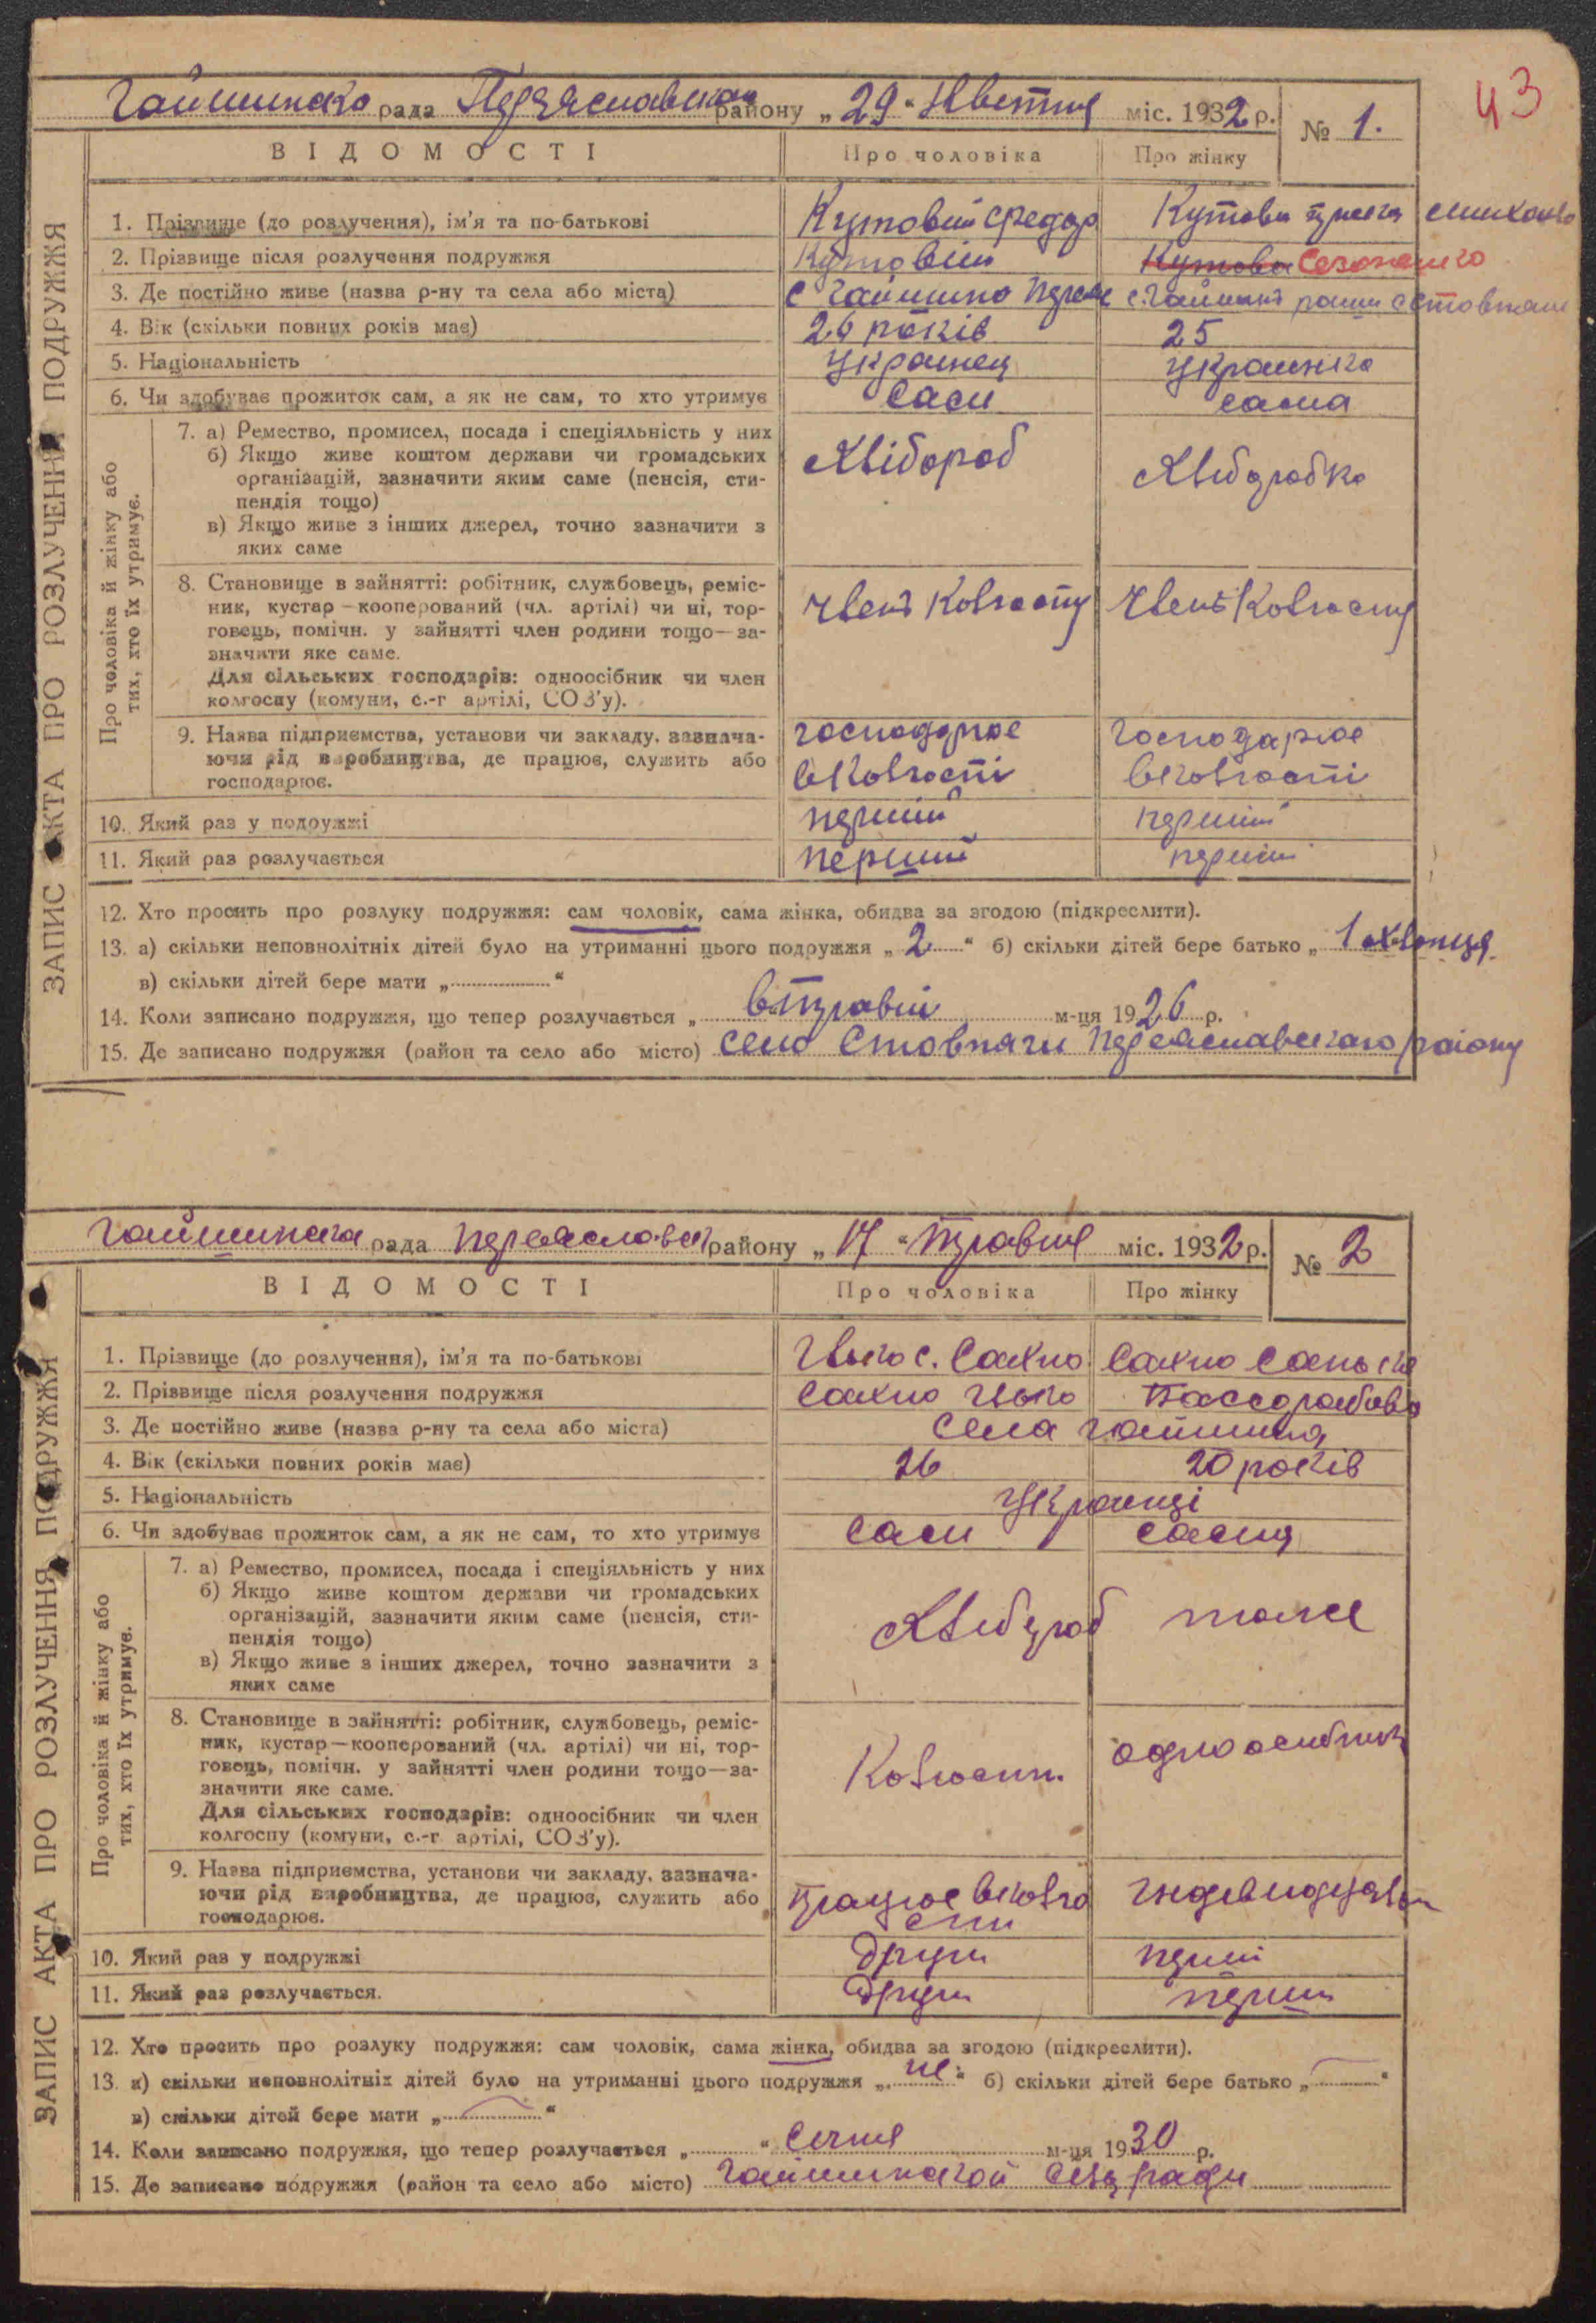 43
Гайшинско рада Переяславском району „29“ Квітня міс. 1932 р. № 1.
ВІДОМОСТІ Про чоловіка Про жінку
ЗАПИС АКТА ПРО РОЗЛУЧЕННЯ ПОДРУЖЖЯ
1. Прізвище (до розлучення), ім'я та по-батькові Кутовий Федор Кутова
2. Прізвище після розлучення подружжя Кутовий Кутова
3. Де постійно живе (назва р-ну та села або міста) с Гайшино с. Гайшин
4. Вік (скільки повних років має) 26 років 25
5. Національність Украинец Украинка
6. Чи здобуває прожиток сам, а як не сам, то хто утримує Сам сама
Про чоловіка й жінку або тих, хто їх утримує.
7. а) Ремество, промисел, посада і спеціяльність у них Хлібороб Хліборобка
б) Якщо живе коштом держави чи громадських
організацій, зазначити яким саме (пенсія, сти-
пендія тощо)
в) Якщо живе з інших джерел, точно зазначити з
яких саме
8. Становище в зайнятті: робітник, службовець, реміс- Член Колгоспу Член Колгоспу
ник, кустар—кооперований (чл. артілі) чи ні, тор-
говець, помічн. у зайнятті член родини тощо—за-
значити яке саме.
Для сільських господарів: одноосібник чи член
колгоспу (комуни, с.-г. артілі, СОЗ'у).
9. Назва підприємства, установи чи закладу, зазнача- господарює Господарює
ючи рід виробництва, де працює, служить або вколгоспі вколгоспі
господарює.
10. Який раз у подружжі перший перший
11. Який раз розлучається перший перший
12. Хто просить про розлуку подружжя: сам чоловік, сама жінка, обидва за згодою (підкреслити).
13. а) скільки неповнолітніх дітей було на утриманні цього подружжя „2“ б) скільки дітей бере батько „1 хлопця
в) скільки дітей бере мати „ “
14. Коли записано подружжя, що тепер розлучається „ в травні м-ця 1926 р.
15. Де записано подружжя (район та село або місто) село Стовпяги Переяславского району
Гайшинска рада Переяславск району „17“ травня міс. 1932 р. № 2
ВІДОМОСТІ Про чоловіка Про жінку
ЗАПИС АКТА ПРО РОЗЛУЧЕННЯ ПОДРУЖЖЯ
1. Прізвище (до розлучення), ім'я та по-батькові с. Сахно Сахно
2. Прізвище після розлучення подружжя Сахно
3. Де постійно живе (назва р-ну та села або міста) села Гайшина
4. Вік (скільки повних років має) 26 20 років
5. Національність Украинці
6. Чи здобуває прожиток сам, а як не сам, то хто утримує сам сама
Про чоловіка й жінку або тих, хто їх утримує.
7. а) Ремество, промисел, посада і спеціяльність у них Хлибороб тоже
б) Якщо живе коштом держави чи громадських
організацій, зазначити яким саме (пенсія, сти-
пендія тощо)
в) Якщо живе з інших джерел, точно зазначити з
яких саме
8. Становище в зайнятті: робітник, службовець, реміс- Колгоспн. одноосибник
ник, кустар—кооперований (чл. артілі) чи ні, тор-
говець, помічн. у зайнятті член родини тощо—за-
значити яке саме.
Для сільських господарів: одноосібник чи член
колгоспу (комуни, с.-г. артілі, СОЗ'у).
9. Назва підприємства, установи чи закладу, зазнача- працює вколго
ючи рід виробництва, де працює, служить або спи
господарює.
10. Який раз у подружжі други перши
11. Який раз розлучається. други перши
12. Хто просить про розлуку подружжя: сам чоловік, сама жінка, обидва за згодою (підкреслити).
13. а) скільки неповнолітніх дітей було на утриманні цього подружжя „не“ б) скільки дітей бере батько „ “
в) скільки дітей бере мати „ “
14. Коли записано подружжя, що тепер розлучається „ “ Сечня м-ця 1930 р.
15. Де записано подружжя (район та село або місто) Гайшинской сель ради